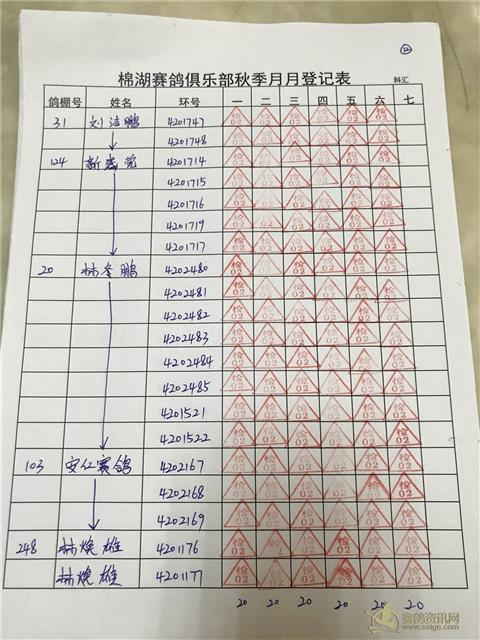 12
棉湖赛鸽俱乐部秋季月月登记表 科汇
鸽棚号 姓名 环号 一 二 三 四 五 六 七
31 刘洁鹏 4201747 检02 检02 检02 检02 检02 检02
4201748 检02 检02 检02 检02 检02 检02
124 4201714 检02 检02 检02 检02 检02 检02
4201715 检02 检02 检02 检02 检02 检02
4201716 检02 检02 检02 检02 检02 检02
4201719 检02 检02 检02 检02 检02 检02
4201717 检02 检02 检02 检02 检02 检02
20 林冬鹏 4202480 检02 检02 检02 检02 检02 检02
4202481 检02 检02 检02 检02 检02 检02
4202482 检02 检02 检02 检02 检02 检02
4202483 检02 检02 检02 检02 检02 检02
4202484 检02 检02 检02 检02 检02 检02
4202485 检02 检02 检02 检02 检02 检02
4201521 检02 检02 检02 检02 检02 检02
4201522 检02 检02 检02 检02 检02 检02
103 安仁赛鸽 4202167 检02 检02 检02 检02 检02 检02
4202168 检02 检02 检02 检02 检02 检02
4202169 检02 检02 检02 检02 检02 检02
248 林焕雄 4201176 检02 检02 检02 检02 检02 检02
林焕雄 4201177 检02 检02 检02 检02 检02 检02
20 20 20 20 20 20
赛鸽资讯网
www.saige.com